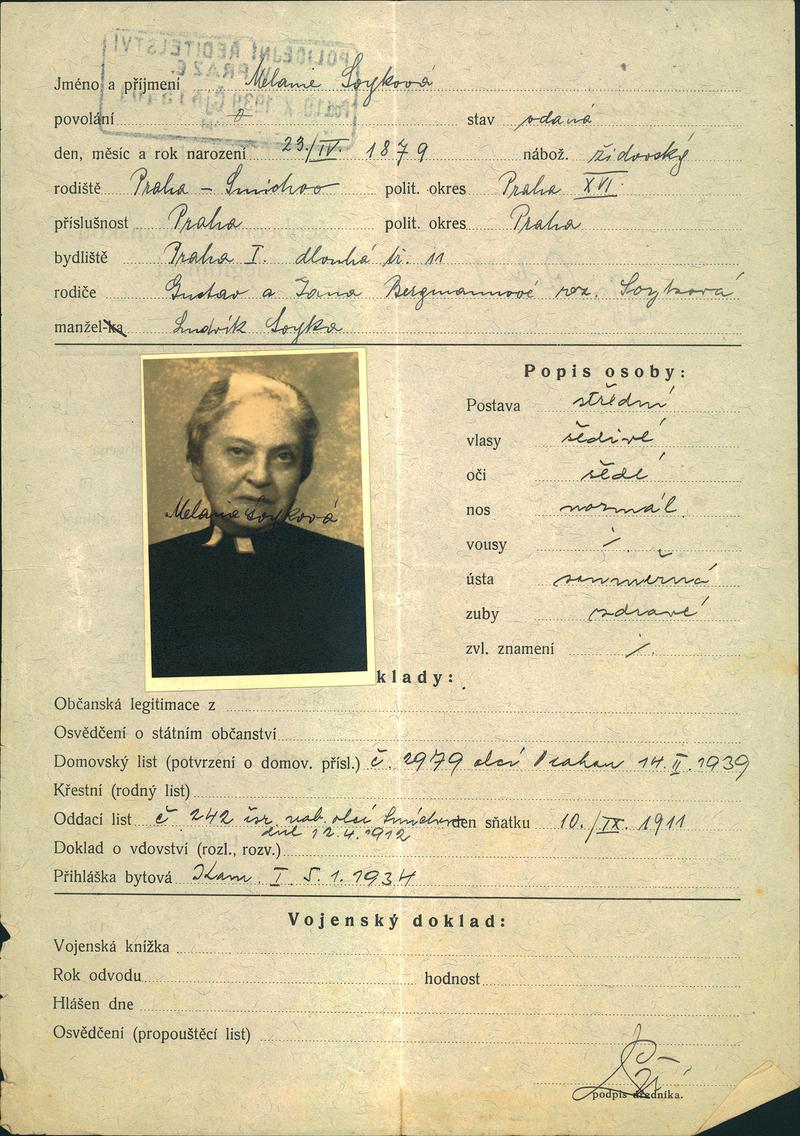 POLICEJNÍ ŘEDITELSTVÍ
PRAZE
1939
Jméno a příjmení Melanie Soyková
povolání 0 stav vdaná
den, měsíc a rok narození 23./IV. 1879 nábož. židovský
rodiště Praha – Smíchov polit. okres Praha XVI.
příslušnost Praha polit. okres Praha
bydliště Praha I. dlouhá tř. 11
rodiče Gustav a Jana Bergmannové roz. Soyková
manžel-ka Ludvík Soyka
Popis osoby:
Postava střední
vlasy šedivé
oči šedé
nos normál.
vousy /.
ústa souměrná
zuby zdravé
zvl. znamení /.
Melanie Soyková
klady:
Občanská legitimace z
Osvědčení o státním občanství
Domovský list (potvrzení o domov. přísl.) č. 2979 obcí Prahou 14.II.1939
Křestní (rodný list)
Oddací list č 242 isr. náb. obcí Smíchov den sňatku 10./IX. 1911
dne 12.4.1912
Doklad o vdovství (rozl., rozv.)
Přihláška bytová Kom. I 5.1.1934
Vojenský doklad:
Vojenská knížka
Rok odvodu hodnost
Hlášen dne
Osvědčení (propouštěcí list)
podpis úředníka.